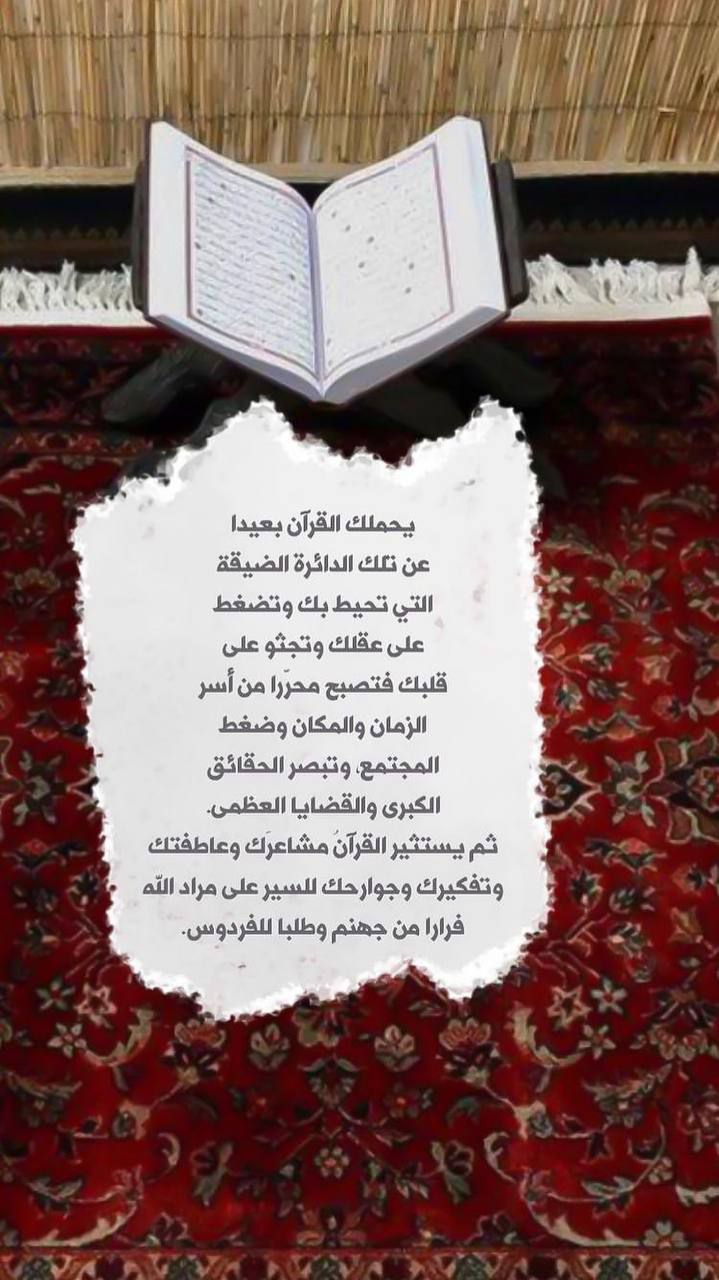 يحملك القرآن بعيدا
عن تلك الدائرة الضيقة
التي تحيط بك وتضغط
على عقلك وتجثو على
قلبك فتصبح محرّرا من أسر
الزمان والمكان وضغط
المجتمع، وتبصر الحقائق
الكبرى والقضايا العظمى.
ثم يستثير القرآنُ مشاعرَك وعاطفتك
وتفكيرك وجوارحك للسير على مراد الله
فرارا من جهنم وطلبا للفردوس.